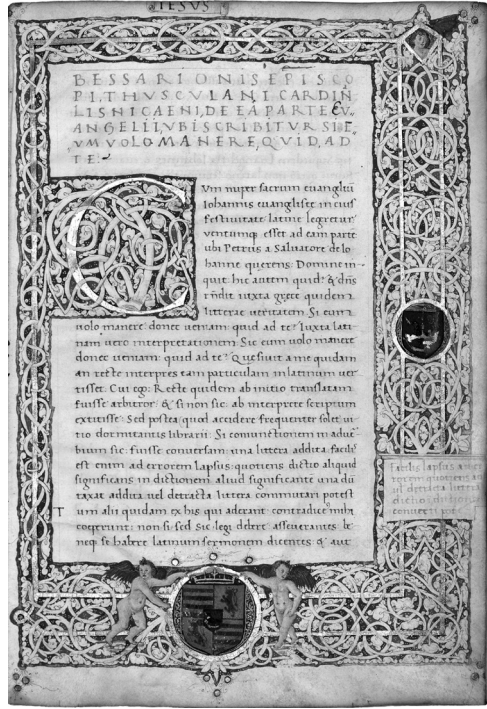 IESVS
BESSARIONIS EPISCO
PI, THVSCVLANI CARDIN̄
LIS NICAENI, DE EA PARTE EV̄
ANGELII, VBI SCRIBITVR SI E
VM VOLO MANERE, QVID, AD
TE
CVm nuper sacrum euangeliū
Iohannis euangeliste in eius
festiuitate latine legeretur
uentumque esset ad eam parte
ubi Petrus a Saluatore de Io
hanne querens: Domine in-
quit hic autem quid? & dn̄s
rn̄dit iuxta grece quidem
litterae ueritatem. Si eum
uolo manere: donec ueniam: quid ad te? Iuxta lati-
nam uero interpretationem. Sic eum uolo manere
donec ueniam: quid ad te? Quesiuit a me quidam
an recte interpres eam particulam in latinum uer
tisset. Cui ego: Recte quidem ab initio translatam
fuisse arbitror: & si non sic: ab interprete scriptum
extitisse: Sed postea quod accidere frequenter solet ui-
tio dormitantis librarii: Si coniunctionem in aduer
bium sic: fuisse conuersam: una littera addita. facilis
est enim ad errorem lapsus: quotiens dictio aliquid
significans in dictionem aliud significante una dū
taxat addita uel detracta littera commutari potest
Tum alii quidam ex his qui aderant: contradicere mihi
coeperunt: non si sed sic legi debere asseuerantes: be
neque se habere latinum sermonem dicentes: & aut
facilis lapsus a
rorem quotiens au
uel detracta littera
dictio
conuerti pot